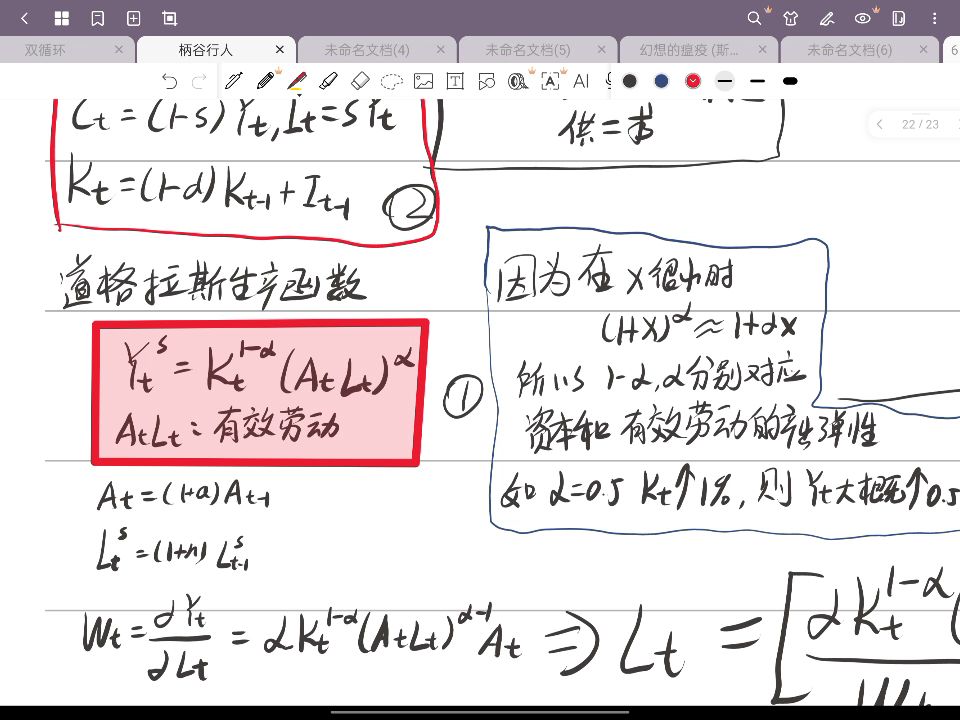 双循环
柄谷行人
未命名文档(4)
未命名文档(5)
幻想的瘟疫 (斯...
未命名文档(6)
6
22 / 23
Ct = (1-s) Yt, It = sYt
供 =
Kt = (1-d) Kt-1 + It-1 ②
道格拉斯生产函数
Yt^s = Kt^1-α (At Lt)^α
AtLt: 有效劳动
①
因为在 x很小时
(1+x)^α ≈ 1+αx
所以 1-α, α分别对应
资本和有效劳动的产出弹性
如 α=0.5 Kt↑1%, 则 Yt大概↑0.5
At = (1+a) At-1
Lt^s = (1+n) Lt-1^s
Wt = ∂Yt/∂Lt = αKt^1-α (AtLt)^α-1 At ⇒ Lt = [αKt^1-α (
Wt